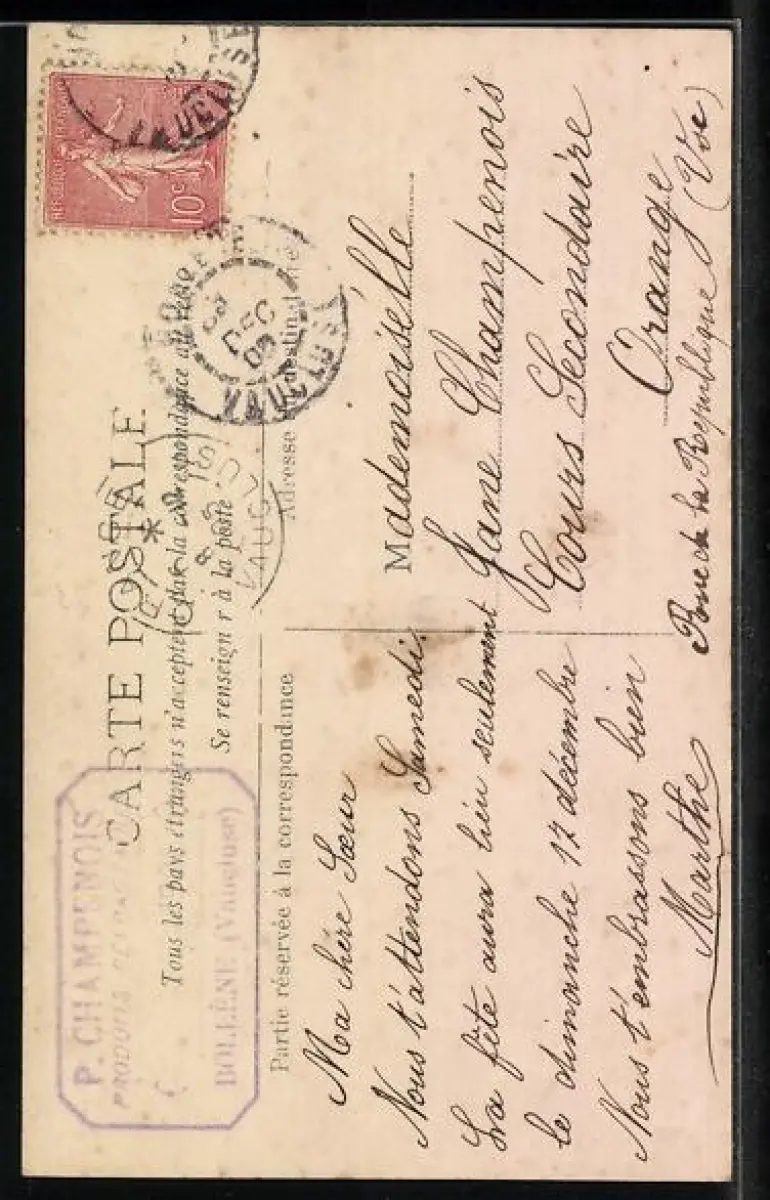 CARTE POSTALE
Tous les pays étrangers n'acceptent pas la correspondance au
Se renseigner à la poste
Partie réservée à la correspondance
Adresse destinat
P. CHAMPENOIS
PRODUITS
BOLLÈNE (Vaucluse)
RÉPUBLIQUE FRANÇAISE
10c
DEC
VAUCLUSE
VAUCLUSE
Ma chère Sœur
Nous t'attendons Samedi.
La fête aura lieu seulement
le dimanche 17 décembre
Nous t'embrassons bien
Marthe
Mademoiselle
Jane Champenois
Cours Secondaire
Orange
Rue de la République (Vse)